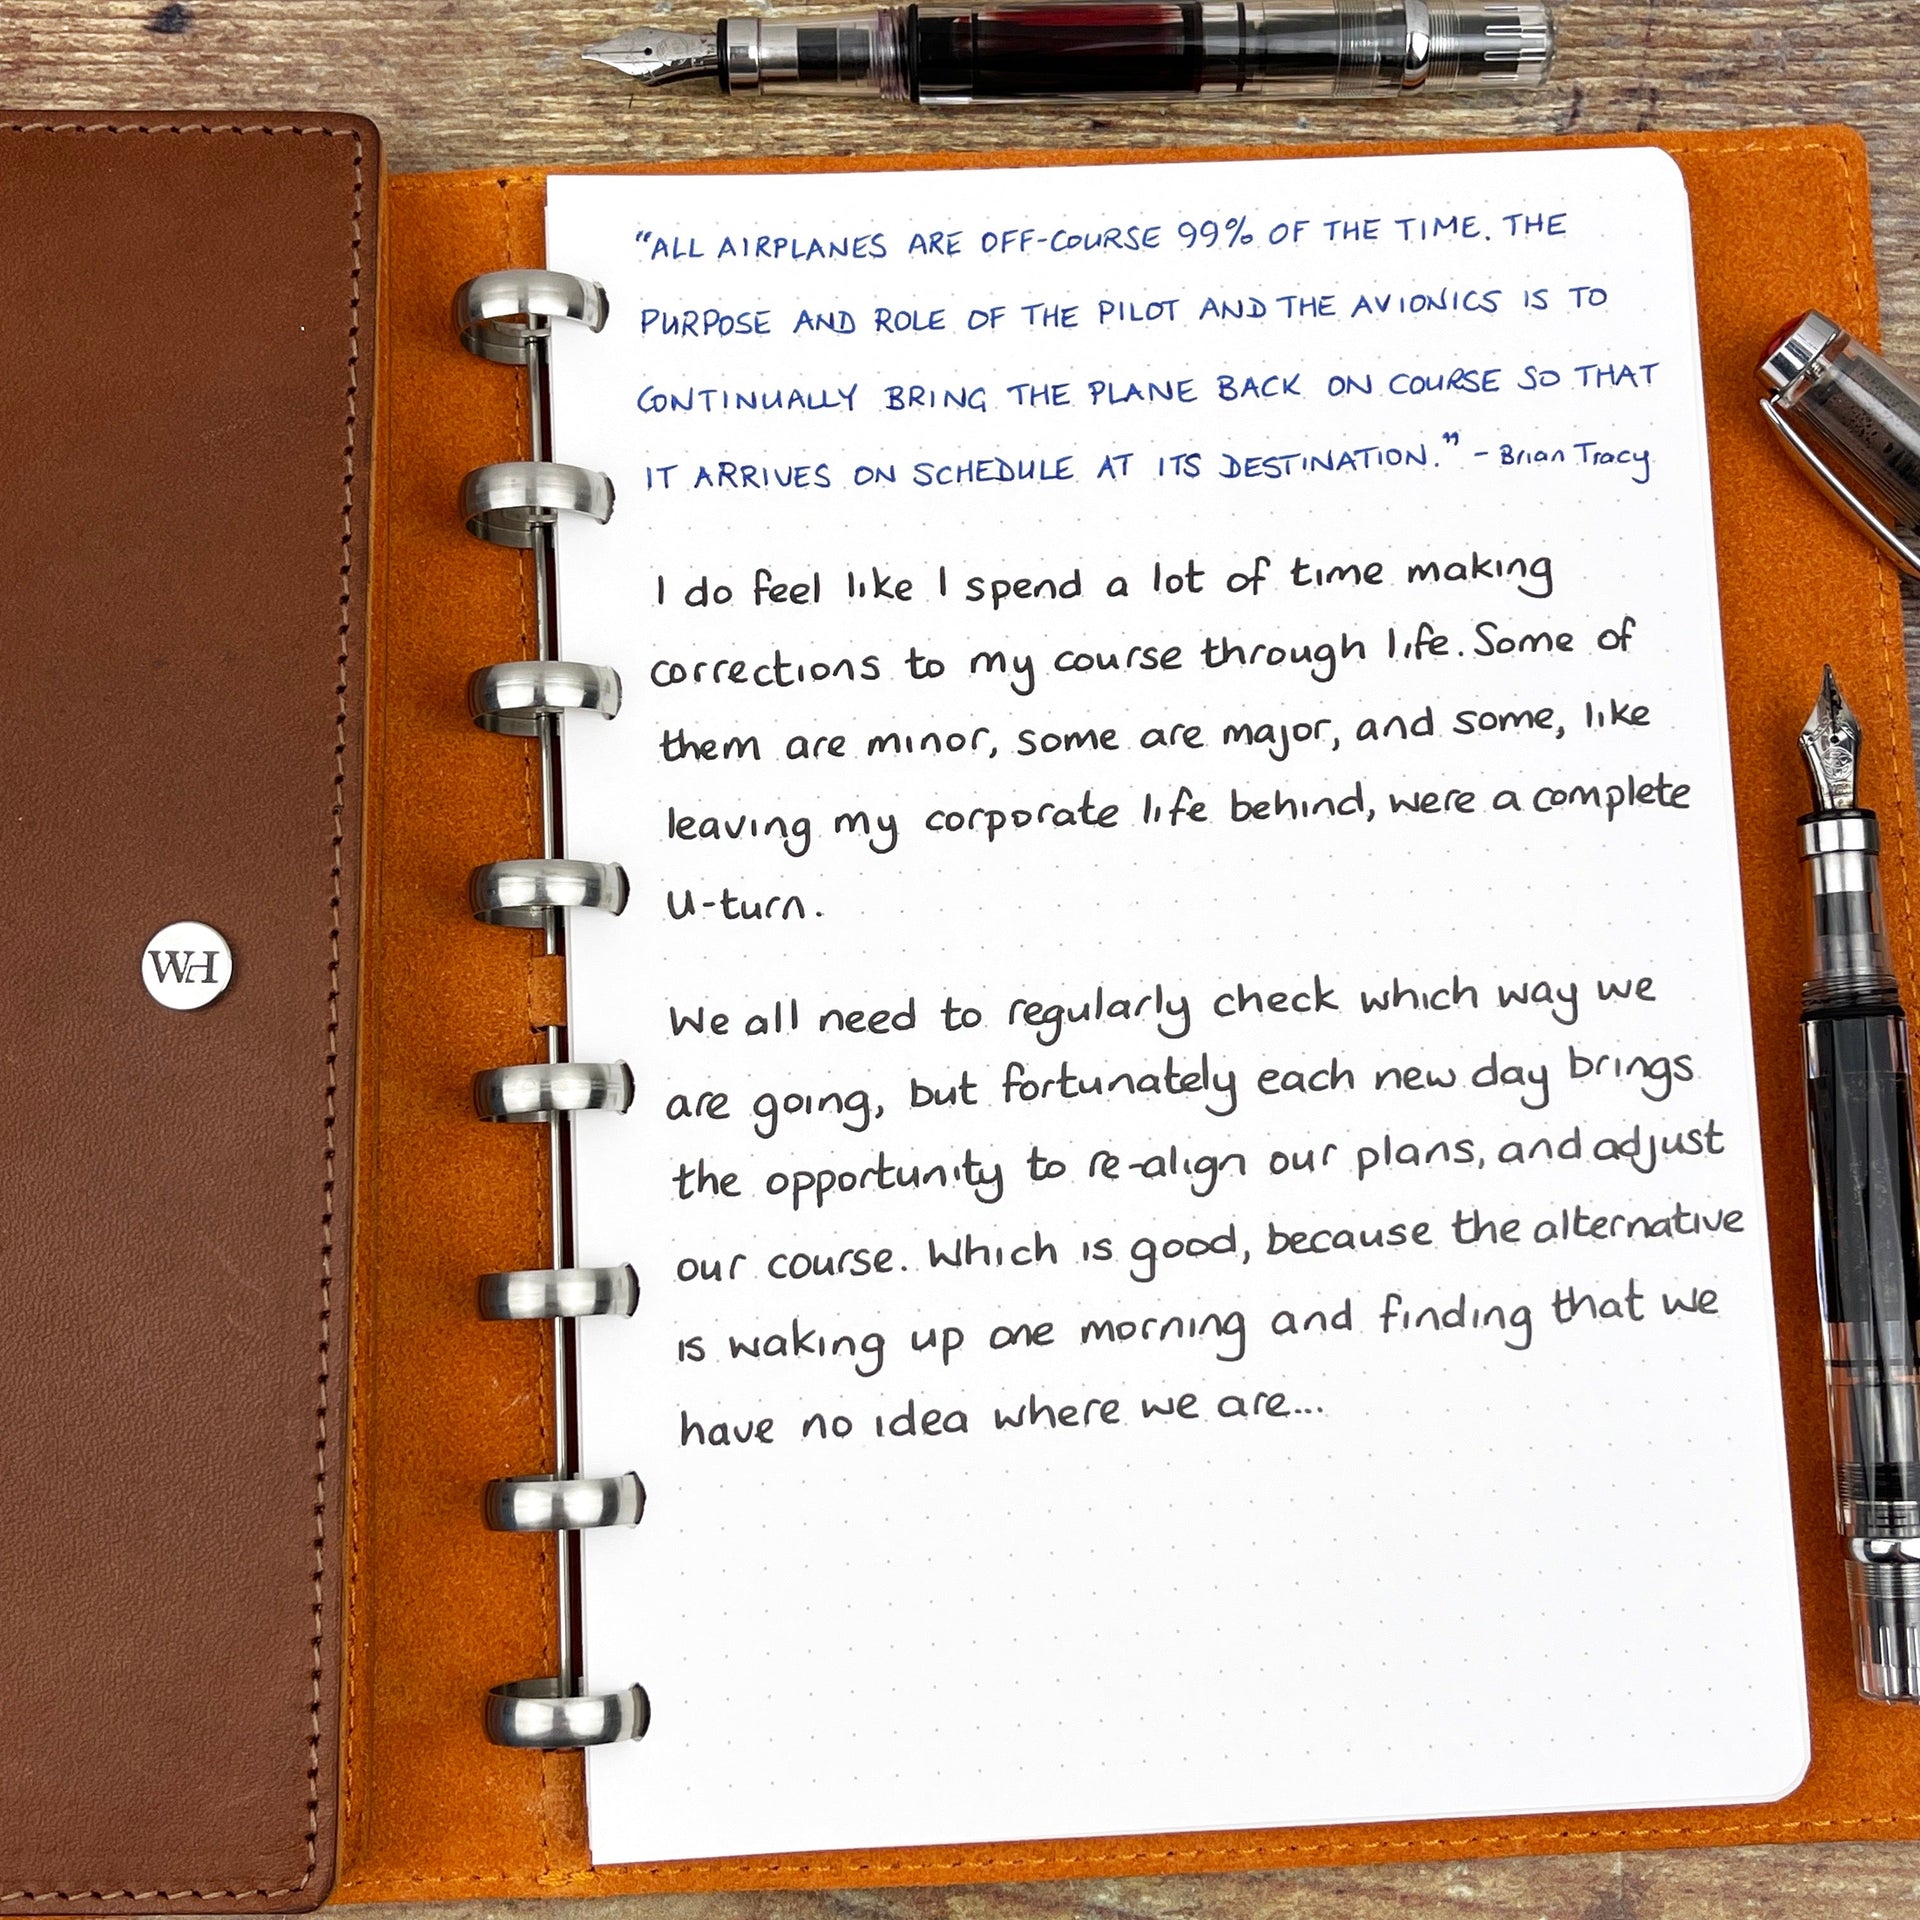 WH
"ALL AIRPLANES ARE OFF-COURSE 99% OF THE TIME. THE
PURPOSE AND ROLE OF THE PILOT AND THE AVIONICS IS TO
CONTINUALLY BRING THE PLANE BACK ON COURSE SO THAT
IT ARRIVES ON SCHEDULE AT ITS DESTINATION." - Brian Tracy
I do feel like I spend a lot of time making
corrections to my course through life. Some of
them are minor, some are major, and some, like
leaving my corporate life behind, were a complete
U-turn.
We all need to regularly check which way we
are going, but fortunately each new day brings
the opportunity to re-align our plans, and adjust
our course. Which is good, because the alternative
is waking up one morning and finding that we
have no idea where we are...